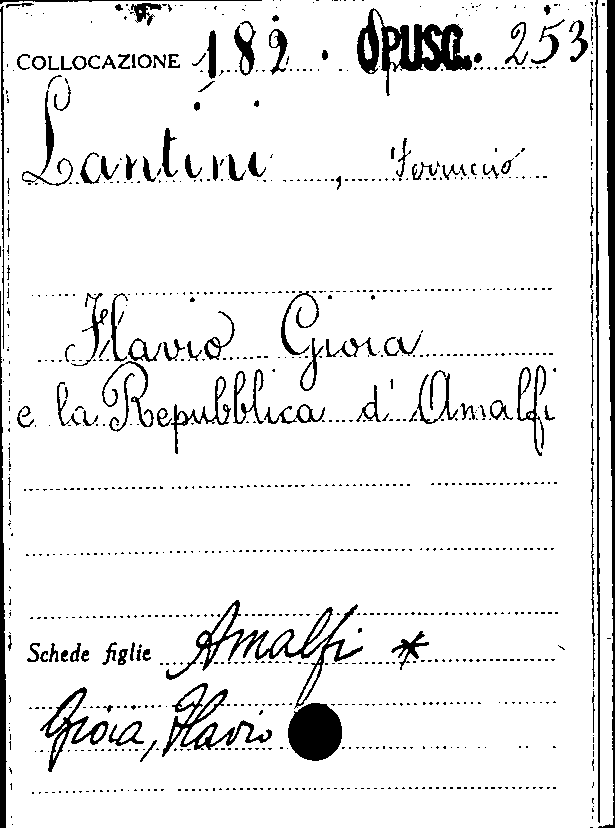 COLLOCAZIONE 182 . OPUSC. 253
Lantini, Ferruccio
Flavio Gioia
e la Repubblica d'Amalfi
Schede figlie Amalfi *
Gioia, Flavio